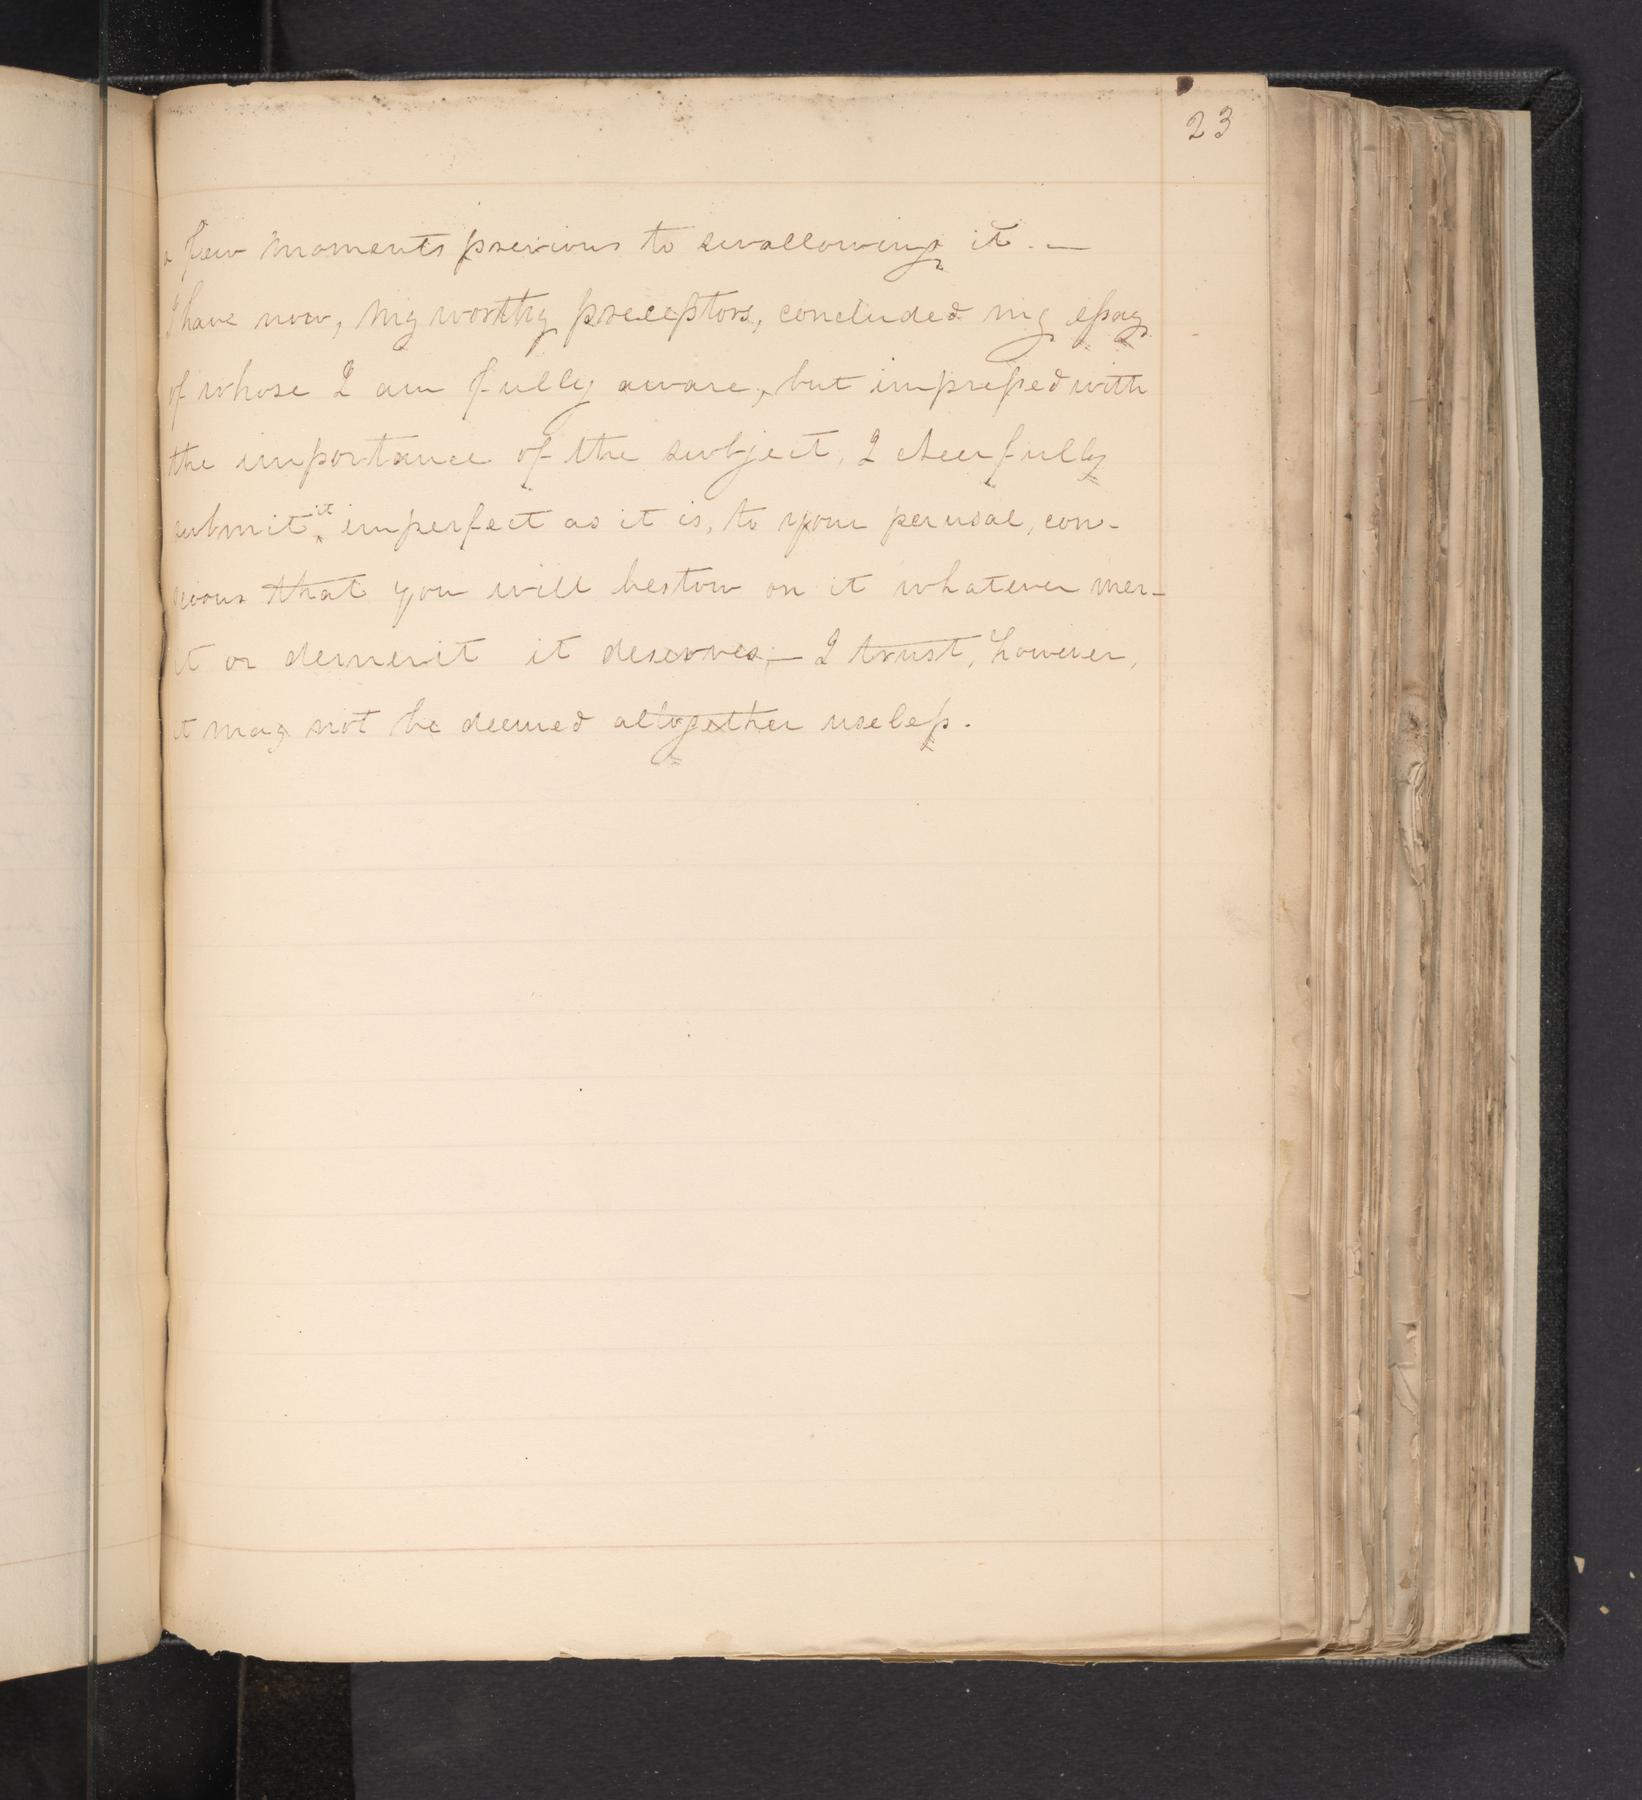 23
a few moments previous to swallowing it. —
I have now, my worthy preceptors, concluded my essay
of whose I am fully aware, but impressed with
the importance of the subject, I cheerfully
submit it imperfect as it is, to your perusal, con-
scious that you will bestow on it whatever mer-
it or demerit it deserves;— I trust, however,
it may not be deemed altogether useless.